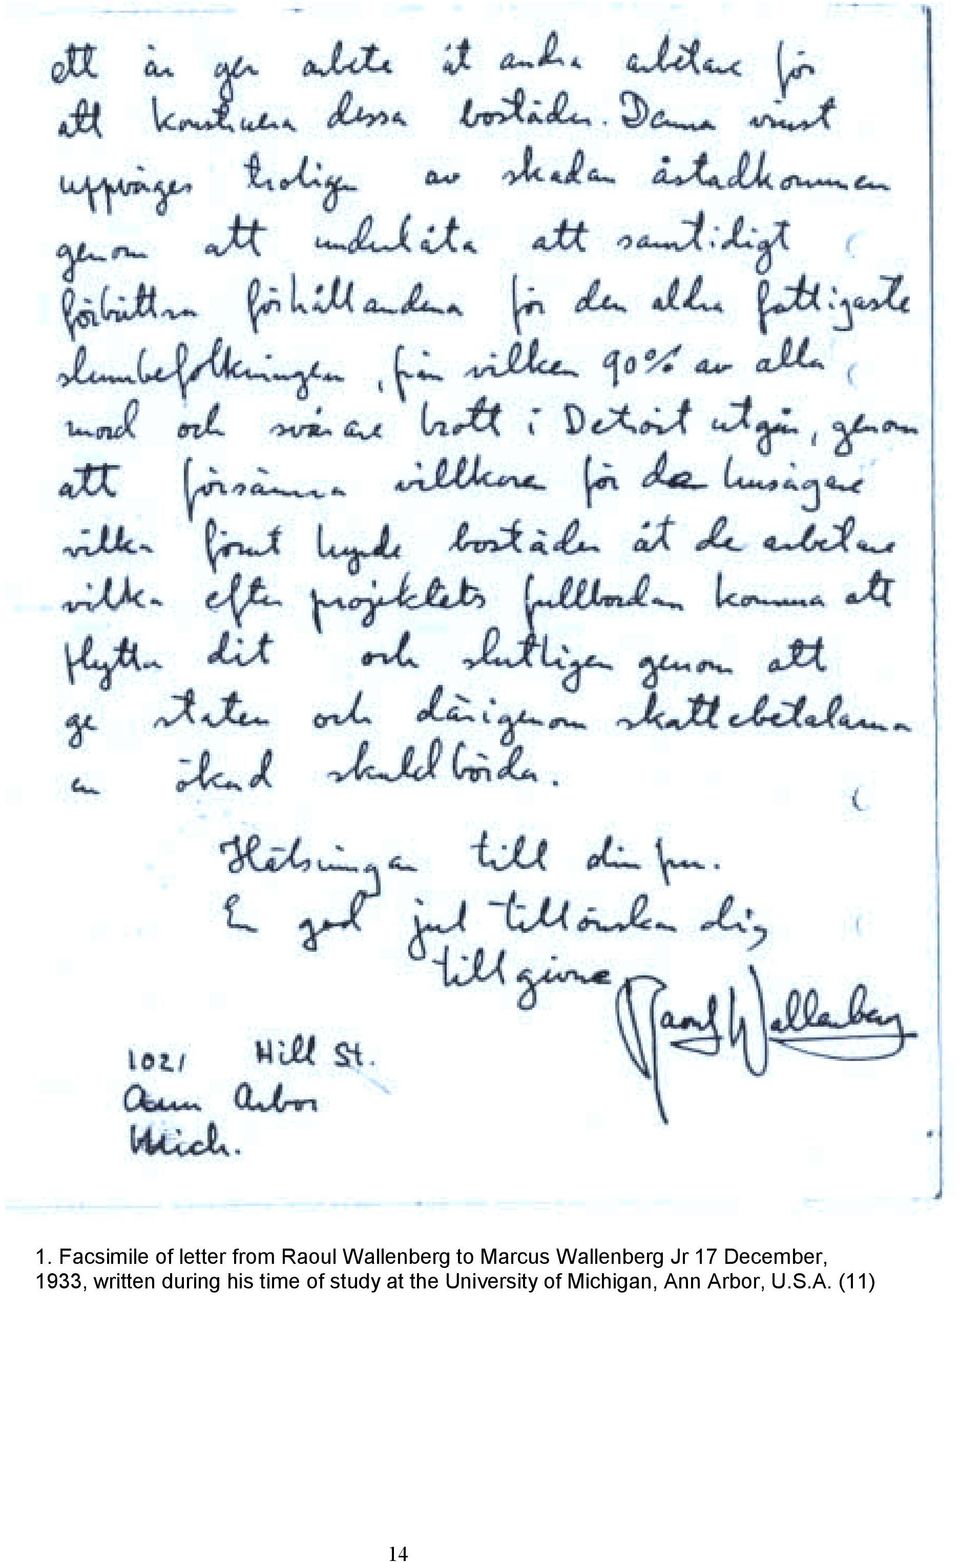 ett år ger arbete åt andra arbetare för
att konstruera dessa bostäder. Denna vinst
uppväges troligen av skadan åstadkommen
genom att underlåta att samtidigt
förbättra förhållandena för den allra fattigaste
slumbefolkningen, från vilken 90% av alla
mord och svårare brott i Detroit utgår, genom
att försämra villkoren för de husägare
vilka förut hyrde bostäder åt de arbetare
vilka efter projektets fullbordan komma att
flytta dit och slutligen genom att
ge staten och därigenom skattebetalarna
en ökad skuldbörda.
Hälsningar till din fru.
En god jul tillönskar dig
tillgivne Raoul Wallenberg
1021 Hill St.
Ann Arbor
Mich.
1. Facsimile of letter from Raoul Wallenberg to Marcus Wallenberg Jr 17 December,
1933, written during his time of study at the University of Michigan, Ann Arbor, U.S.A. (11)
14